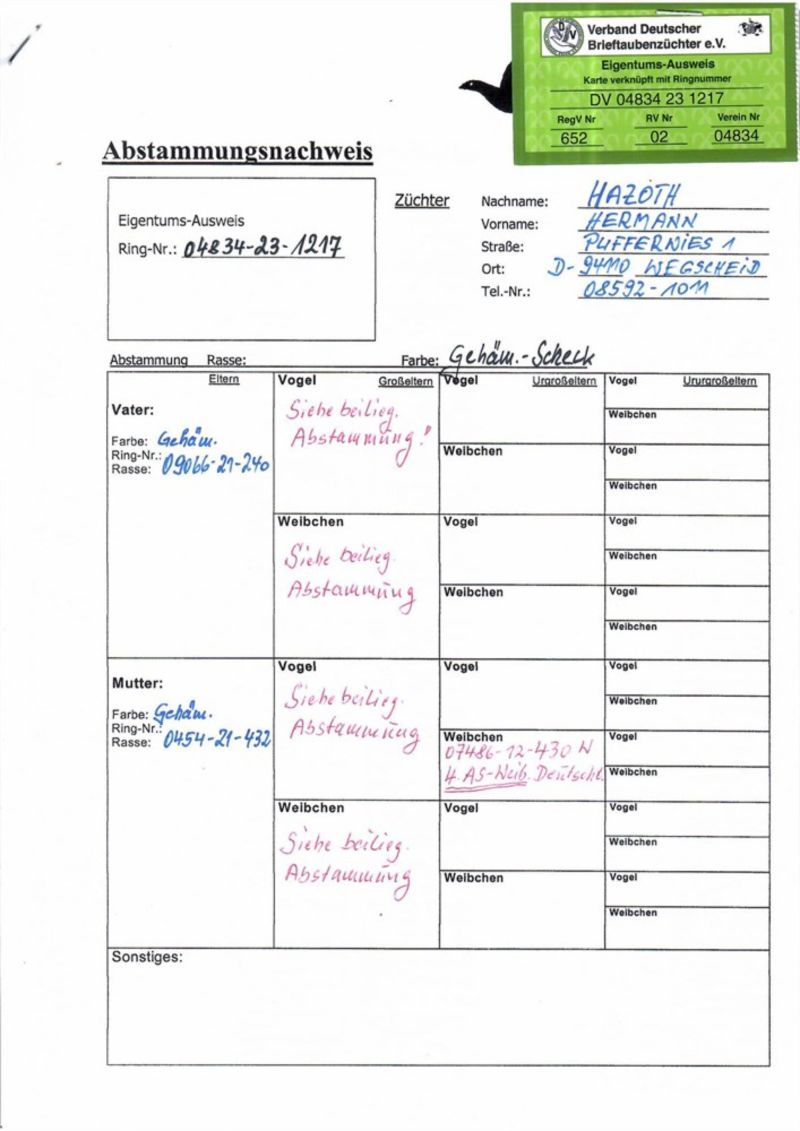 Verband Deutscher
Brieftaubenzüchter e.V.
Eigentums-Ausweis
Karte verknüpft mit Ringnummer
DV 04834 23 1217
RegV Nr RV Nr Verein Nr
652 02 04834
Abstammungsnachweis
Eigentums-Ausweis
Ring-Nr.: 04834-23-1217
Züchter
Nachname: HAZOTH
Vorname: HERMANN
Straße: PUFFERNIES 1
Ort: D-94110 WEGSCHEID
Tel.-Nr.: 08592-1011
Abstammung Rasse: Farbe: Gehäm.-Scheck
Eltern Vogel Großeltern Vogel Urgroßeltern Vogel Ururgroßeltern
Vater:
Farbe: Gehäm.
Ring-Nr.:
Rasse: 09066-21-240
Siehe beilieg.
Abstammung!
Weibchen
Weibchen
Vogel
Weibchen
Weibchen
Siehe beilieg.
Abstammung
Vogel
Weibchen
Vogel
Weibchen
Vogel
Weibchen
Mutter:
Farbe: Gehäm.
Ring-Nr.:
Rasse: 0454-21-432
Vogel
Siehe beilieg.
Abstammung
Vogel
Weibchen
07486-12-430 W
4. AS-Weib. Deutschl.
Vogel
Weibchen
Vogel
Weibchen
Weibchen
Siehe beilieg.
Abstammung
Vogel
Weibchen
Vogel
Weibchen
Vogel
Weibchen
Sonstiges: